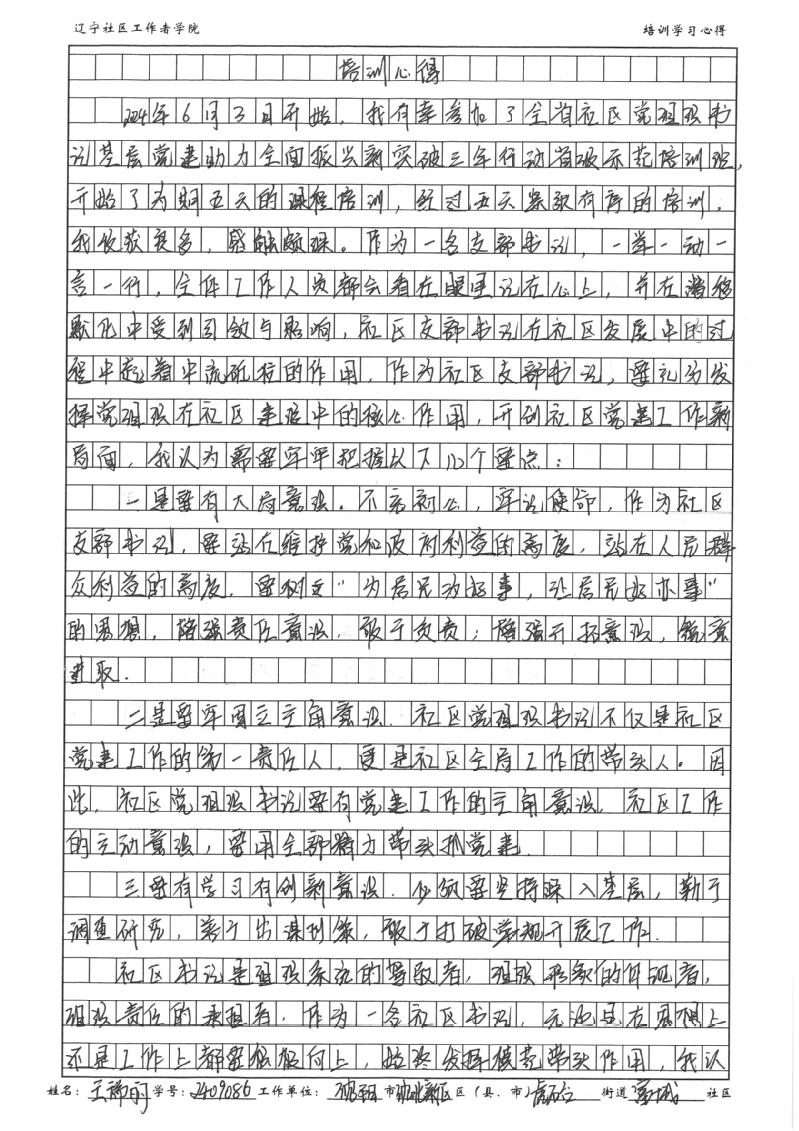 辽宁社区工作者学院 培训学习心得
培训心得
2024年6月3日开始，我有幸参加了全省社区党组织书
记基层党建助力全面振兴新突破三年行动首级示范培训班，
开始了为期五天的课程培训，经过五天紧张有序的培训，
我收获良多，感触颇深。作为一名支部书记，一举一动一
言一行，全体工作人员都会看在眼里记在心上，并在潜移
默化中受到引领与影响，社区支部书记在社区发展中的过
程中起着中流砥柱的作用，作为社区支部书记，要充分发
挥党组织在社区建设中的核心作用，开创社区党建工作新
局面，我认为需要牢牢把握以下几个要点：
一是要有大局意识。不忘初心，牢记使命，作为社区
支部书记，要站在维护党和政府利益的高度，站在人民群
众利益的高度，要树立“为居民办好事，让居民好办事”
的思想，增强责任意识，敢于负责；增强开拓意识，锐意
进取.
二是要牢固立主角意识.社区党组织书记不仅是社区
党建工作的第一责任人，更是社区全局工作的带头人。因
此，社区党组织书记要有党建工作的主角意识，社区工作
的主动意识，要用全部精力带头抓党建.
三要有学习有创新意识.必须要坚持深入基层，勤于
调查研究，善于出谋划策，敢于打破常规开展工作.
社区书记是组织系统的领导者，组织形象的体现者，
组织责任的承担者，作为一名社区书记，无论是在思想上
还是工作上都要积极向上，始终发挥模范带头作用，我认
姓名： 学号：2409086 工作单位：沈阳市沈北新区区（县、市）虎石台街道 社区